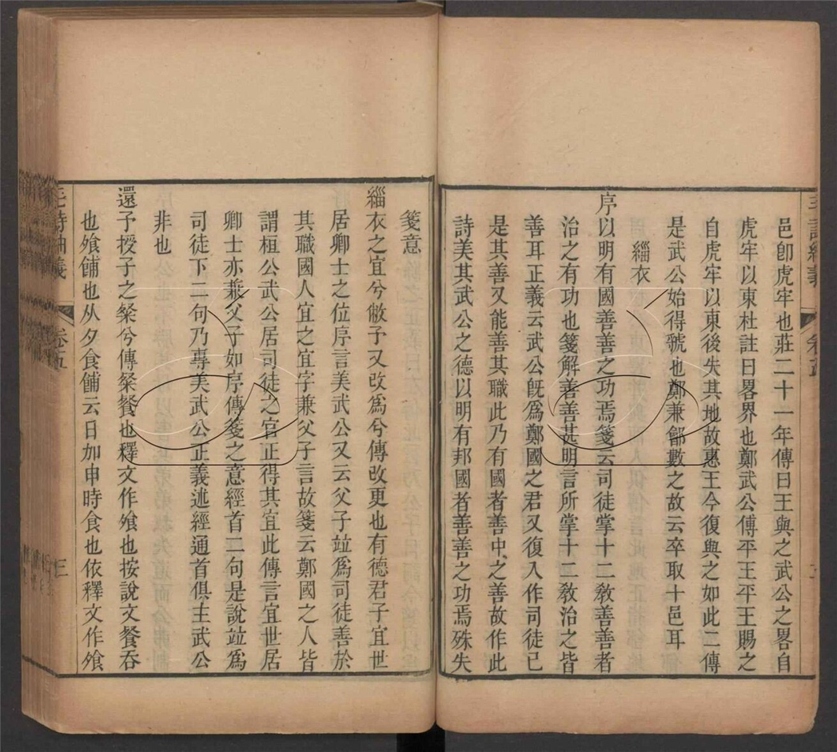 邑卽虎牢也莊二十一年傳曰王與之武公之畧自
虎牢以東杜註曰畧界也鄭武公傅平王平王賜之
自虎牢以東後失其地故惠王今復與之如此二傳
是武公始得虢也鄭兼鄶數之故云卒取十邑耳
緇衣
序以明有國善善之功焉箋云司徒掌十二敎善善者
治之有功也箋解善善甚明言所掌十二敎治之皆
善耳正義云武公旣爲鄭國之君又復入作司徒已
是其善又能善其職此乃有國者善中之善故作此
詩美其武公之德以明有邦國者善善之功焉殊失
箋意
緇衣之宜兮敝予又改爲兮傳改更也有德君子宜世
居卿士之位序言美武公又云父子竝爲司徒善於
其職國人宜之宜字兼父子言故箋云鄭國之人皆
謂桓公武公居司徒之官正得其宜此傳言宜世居
卿士亦兼父子如序傳箋之意經首二句是說竝爲
司徒下二句乃專美武公正義述經通首俱主武公
非也
還予授子之粲兮傳粲餐也釋文作飧也按說文餐吞
也飧餔也从夕食餔云日加申時食也依釋文作飧
毛詩紬義
卷五
三